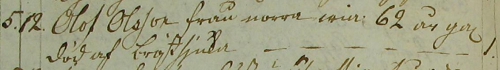 5. 12. Olof Olsson frau norra 62 år
död af bröstsjuka — — — — — 1